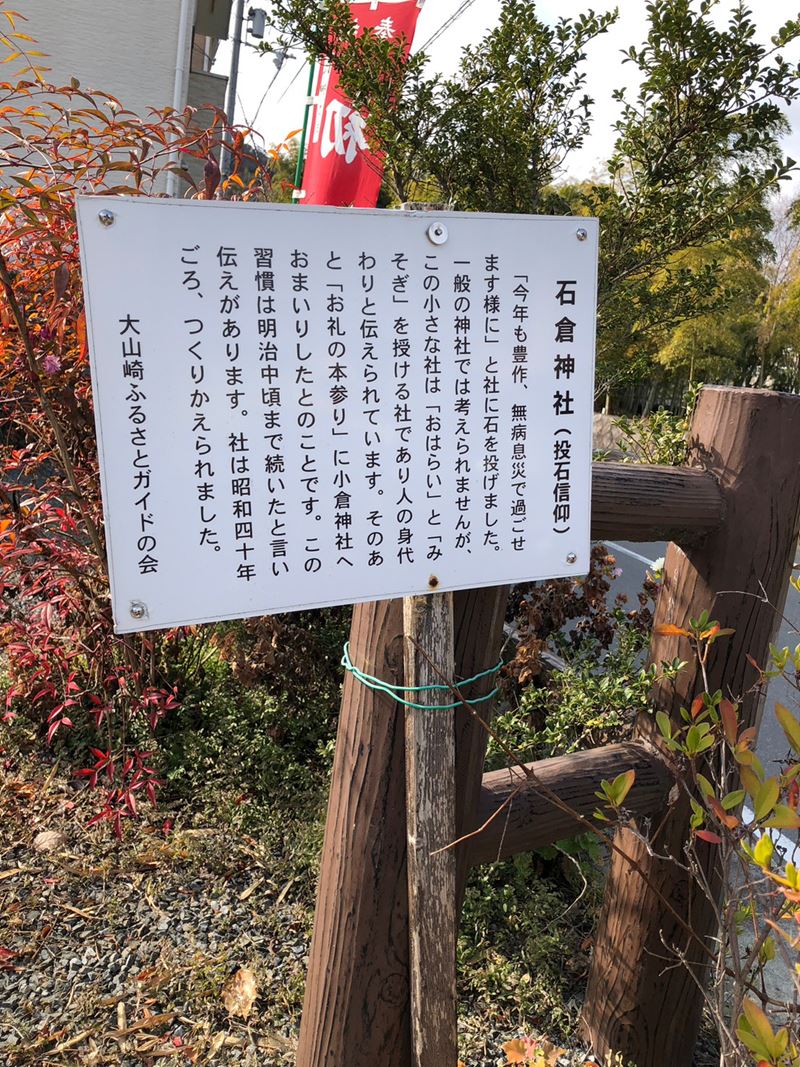 奉
初
石倉神社（投石信仰）
「今年も豊作、無病息災で過ごせ
ます様に」と社に石を投げました。
一般の神社では考えられませんが、
この小さな社は「おはらい」と「み
そぎ」を授ける社であり人の身代
わりと伝えられています。そのあ
と「お礼の本参り」に小倉神社へ
おまいりしたとのことです。この
習慣は明治中頃まで続いたと言い
伝えがあります。社は昭和四十年
ごろ、つくりかえられました。
大山崎ふるさとガイドの会